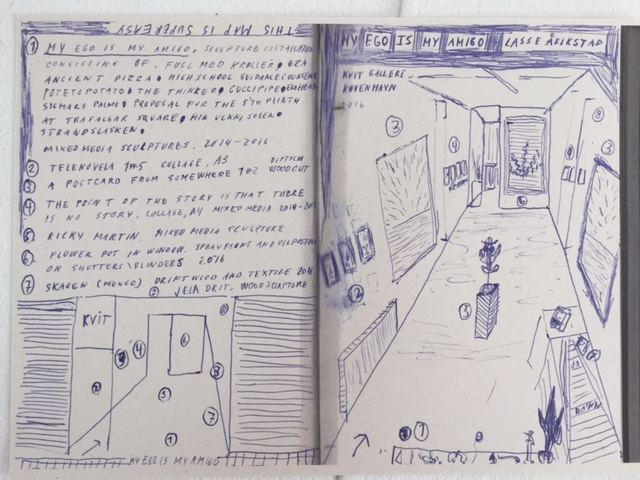 THIS MAP IS SUPEREASY
① MY EGO IS MY AMIGO, SCULPTURE INSTALLATION
CONSISTING OF. FUGL MED KROLLER,
ANCIENT PIZZA. HIGH SCHOOL GUIDANCE
POTETOPOTATO. THE THINKER.
SIGMARS PALME. PROPOSAL FOR THE 5TH PLINTH
AT TRAFALGAR SQUARE. MIN VENN, SOLEN.
STRANDSLASKEN.
MIXED MEDIA SCULPTURES. 2014-2016
② TELENOVELA 1#5 COLLAGE, A3
③ A POSTCARD FROM SOMEWHERE 1#2 DIPTYCH WOODCUT
④ THE POINT OF THE STORY IS THAT THERE
IS NO STORY. COLLAGE, A4 MIXED MEDIA
⑤ RICKY MARTIN. MIXED MEDIA SCULPTURE
⑥ FLOWER POT IN WINDOW. SPRAYPAINT AND
ON SHUTTERS\BLINDERS 2016
⑦ SKAGEN (MONGO) DRIFTWOOD AND TEXTILE 2016
WOODSCULPTURE
KVIT
④
⑥
②
⑤
③
⑦
①
MY EGO IS MY AMIGO
MY EGO IS MY AMIGO LASSE ÅRIKSTAD
KVIT GALLERI
KØBENHAVN
2016
③
④
③
②
①